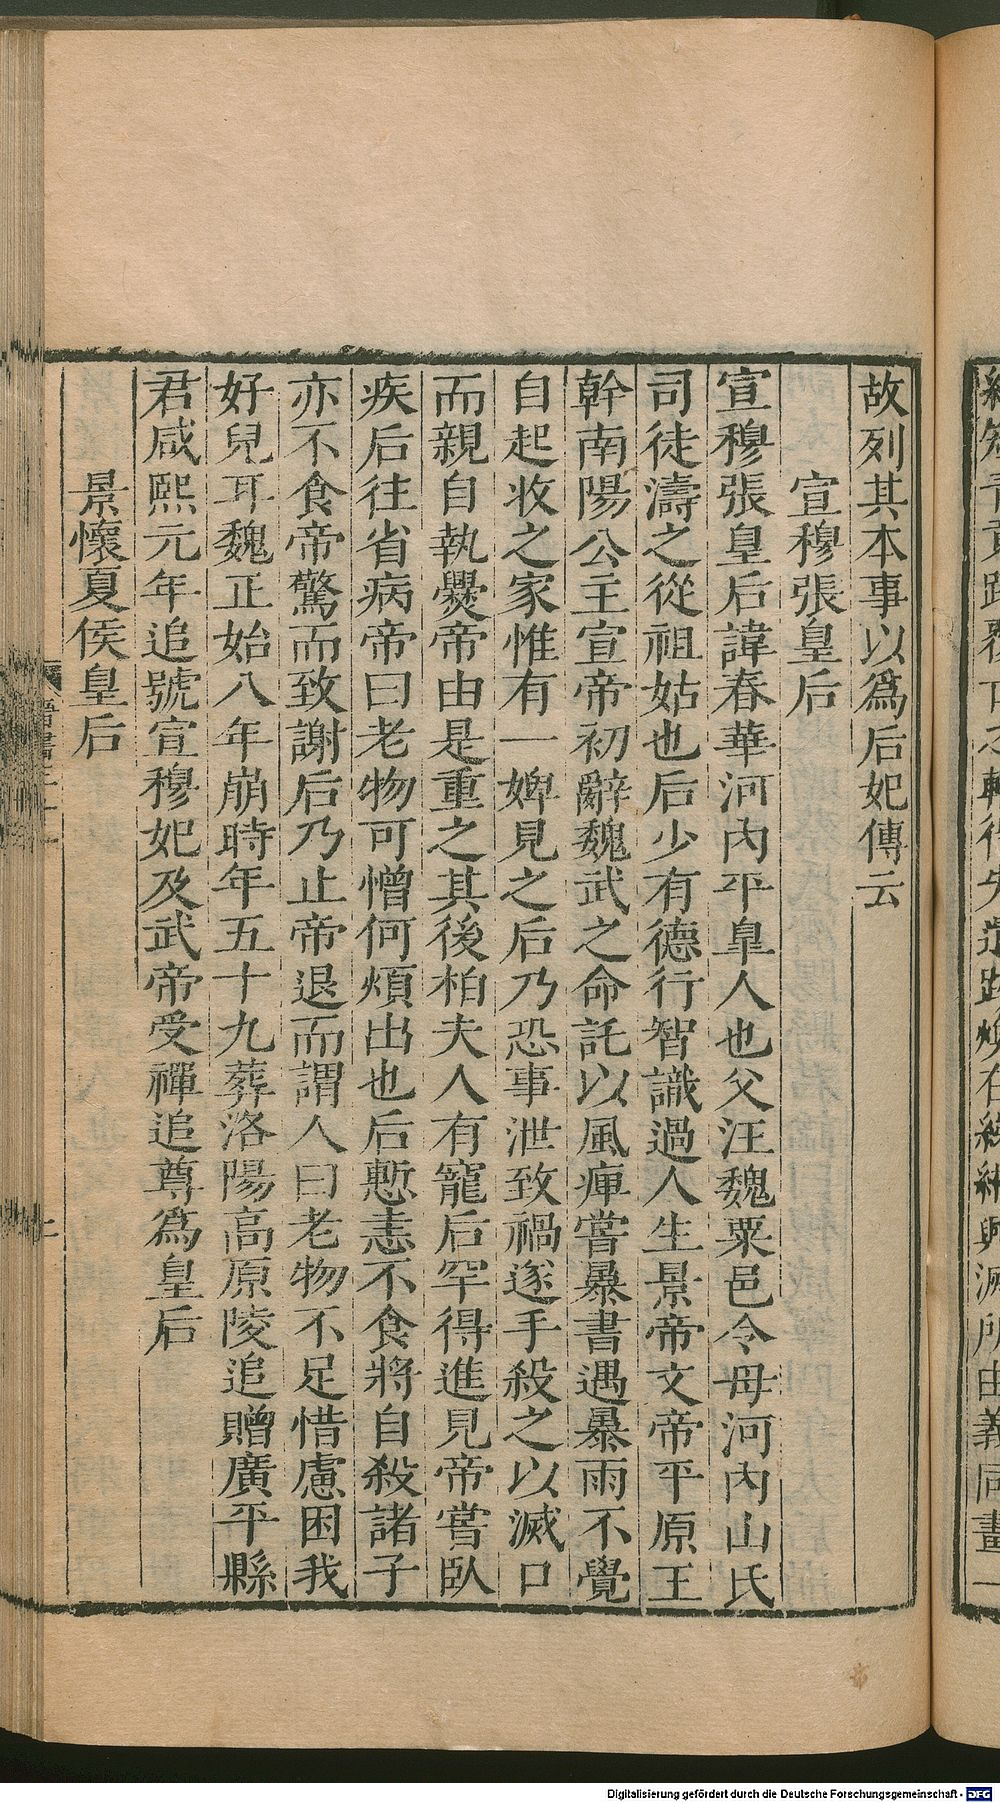 故列其本事以爲后妃傳云
宣穆張皇后
宣穆張皇后諱春華河內平臯人也父汪魏粟邑令母河內山氏
司徒濤之從祖姑也后少有德行智識過人生景帝文帝平原王
幹南陽公主宣帝初辭魏武之命託以風痺嘗暴書遇暴雨不覺
自起收之家惟有一婢見之后乃恐事泄致禍遂手殺之以滅口
而親自執爨帝由是重之其後柏夫人有寵后罕得進見帝嘗臥
疾后往省病帝曰老物可憎何煩出也后慙恚不食將自殺諸子
亦不食帝驚而致謝后乃止帝退而謂人曰老物不足惜慮困我
好兒耳魏正始八年崩時年五十九葬洛陽高原陵追贈廣平縣
君咸熙元年追號宣穆妃及武帝受禪追尊爲皇后
景懷夏侯皇后
Digitalisierung gefördert durch die Deutsche Forschungsgemeinschaft - DFG